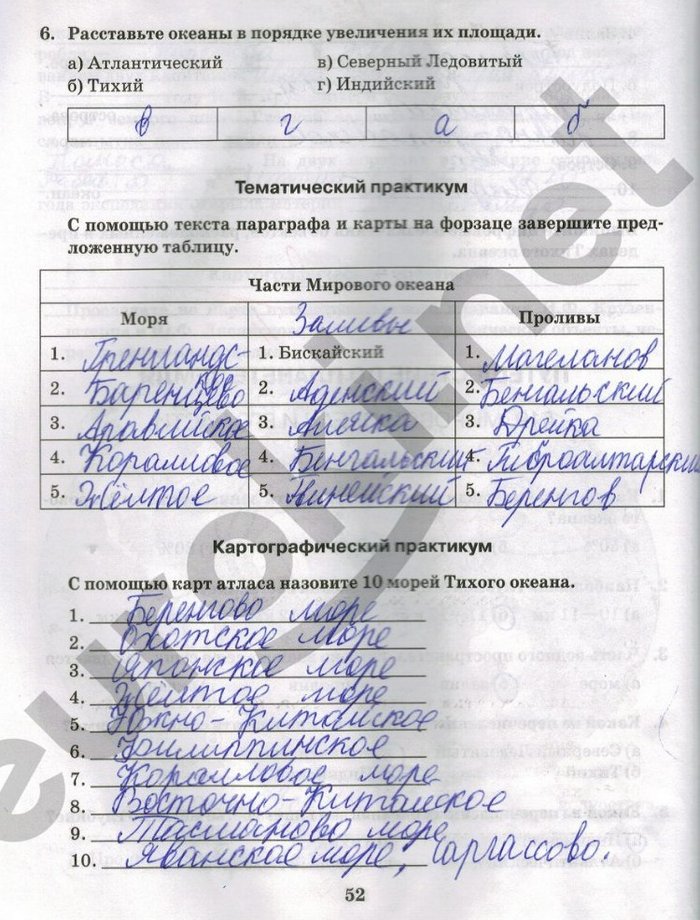 6. Расставьте океаны в порядке увеличения их площади.
а) Атлантический в) Северный Ледовитый
б) Тихий г) Индийский
в г а б
Тематический практикум
С помощью текста параграфа и карты на форзаце завершите пред-
ложенную таблицу.
Части Мирового океана
Моря Заливы Проливы
1. Гренландс- 1. Бискайский 1. Магеланов
кое
2. Баренцево 2. Аденский 2. Бенгальский
3. Аравийское 3. Аляска 3. Дрейка
4. Коралловое 4. Бенгальский 4. Гиброалтарский
5. Жёлтое 5. 5. Беренгов
Картографический практикум
С помощью карт атласа назовите 10 морей Тихого океана.
1. Беренгово море
2. Охотское море
3. Японское море
4. Жёлтое море
5. Южно-Китайское
6. Филиппинское
7. Коралловое море
8. Восточно-Китайское
9. Тасманово море
10. Яванское море, Саргассово.
52
euroki.net